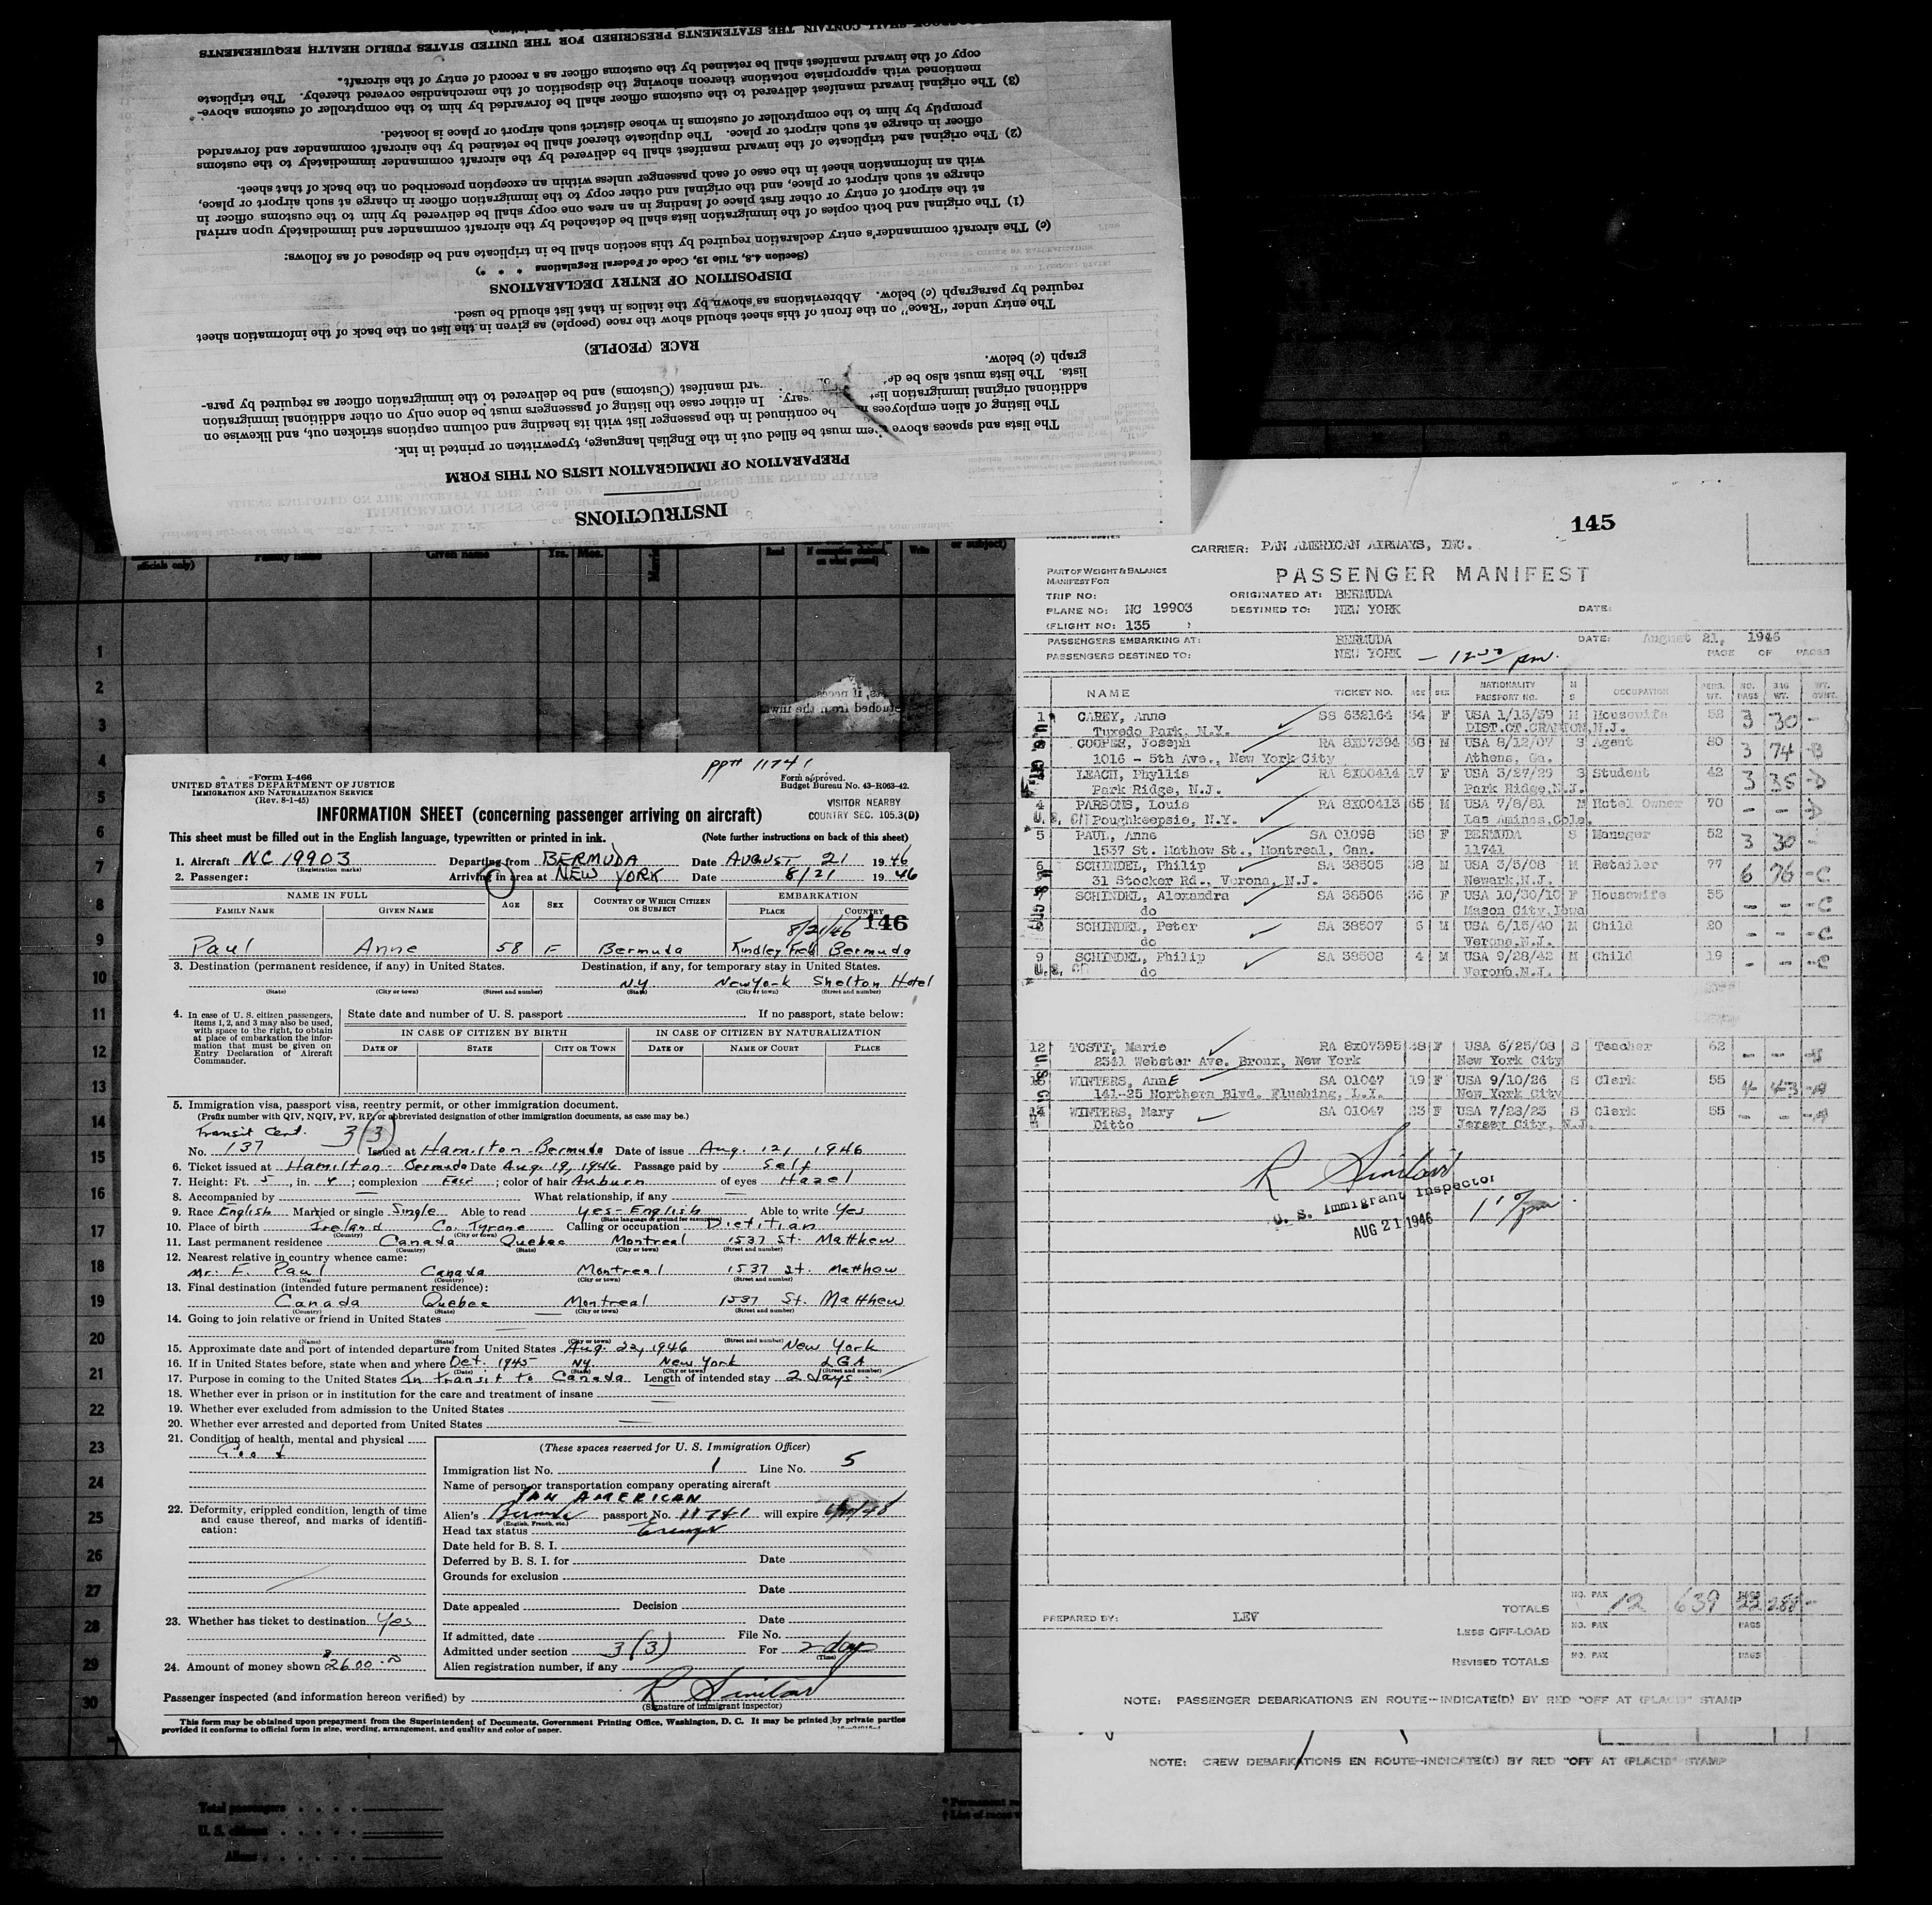 SHALL CONTAIN THE STATEMENTS PRESCRIBED FOR THE UNITED STATES PUBLIC HEALTH REQUIREMENTS
INSTRUCTIONS
PREPARATION OF IMMIGRATION LISTS ON THIS FORM
The lists and spaces above must be filled out in the English language, typewritten or printed in ink.
The listing of alien employees be continued in the passenger list with its heading and column captions stricken out, and likewise on
additional original immigration In either case the listing of passengers must be done only on other additional immigration
lists. The lists must also be manifest (Customs) and be delivered to the immigration officer as required by para-
graph (c) below.
RACE (PEOPLE)
The entry under "Race" on the front of this sheet should show the race (people) as given in the list on the back of the information sheet
required by paragraph (c) below. Abbreviations as shown by the italics in that list should be used.
DISPOSITION OF ENTRY DECLARATIONS
(Section 4.8, Title 19, Code of Federal Regulations * * *)
(c) The aircraft commander's entry declaration required by this section shall be in triplicate and be disposed of as follows:
(1) The original and both copies of the immigration lists shall be detached by the aircraft commander and immediately upon arrival
at the airport of entry or other first place of landing in an area one copy shall be delivered by him to the customs officer in
charge at such airport or place, and the original and other copy to the immigration officer in charge at such airport or place,
with an information sheet in the case of each passenger unless within an exception prescribed on the back of that sheet.
(2) The original and triplicate of the inward manifest shall be delivered by the aircraft commander immediately to the customs
officer in charge at such airport or place. The duplicate thereof shall be retained by the aircraft commander and forwarded
promptly by him to the comptroller of customs in whose district such airport or place is located.
(3) The original inward manifest delivered to the customs officer shall be forwarded by him to the comptroller of customs above-
mentioned with appropriate notations thereon showing the disposition of the merchandise covered thereby. The triplicate
copy of the inward manifest shall be retained by the customs officer as a record of entry of the aircraft.
officials only) Family name Given name Yrs. Mos. Married Read Write or subject)
1
2
3
4
5
6
7
8
9
10
11
12
13
14
15
16
17
18
19
20
21
22
23
24
25
26
27
28
29
30
Total passengers
U. S. citizens
Aliens
ppt# 11741
Form I-466
UNITED STATES DEPARTMENT OF JUSTICE
IMMIGRATION AND NATURALIZATION SERVICE
(Rev. 8-1-45)
Form approved.
Budget Bureau No. 43-R063-42.
VISITOR NEARBY
COUNTRY SEC. 105.3(D)
INFORMATION SHEET (concerning passenger arriving on aircraft)
This sheet must be filled out in the English language, typewritten or printed in ink. (Note further instructions on back of this sheet)
1. Aircraft NC 19903 Departing from BERMUDA Date AUGUST 21 1946
(Registration marks)
2. Passenger: Arriving in area at NEW YORK Date 8/21 1946
NAME IN FULL AGE SEX COUNTRY OF WHICH CITIZEN OR SUBJECT EMBARKATION
FAMILY NAME GIVEN NAME PLACE COUNTRY
8/21/46 146
Paul Anne 58 F Bermuda Kindley Field Bermuda
3. Destination (permanent residence, if any) in United States. Destination, if any, for temporary stay in United States.
N.Y New York Shelton Hotel
(State) (City or town) (Street and number) (State) (City or town) (Street and number)
4. In case of U. S. citizen passengers, items 1, 2, and 3 may also be used, with space to the right, to obtain at place of embarkation the information that must be given on Entry Declaration of Aircraft Commander.
State date and number of U. S. passport If no passport, state below:
IN CASE OF CITIZEN BY BIRTH IN CASE OF CITIZEN BY NATURALIZATION
DATE OF STATE CITY OR TOWN DATE OF NAME OF COURT PLACE
5. Immigration visa, passport visa, reentry permit, or other immigration document.
(Prefix number with QIV, NQIV, PV, RP, or abbreviated designation of other immigration documents, as case may be.)
Transit Cert. 3(3)
No. 137 Issued at Hamilton-Bermuda Date of issue Aug. 12, 1946
6. Ticket issued at Hamilton-Bermuda Date Aug. 19, 1946 Passage paid by Self
7. Height: Ft. 5, in. 4; complexion Fair; color of hair Auburn of eyes Hazel
8. Accompanied by What relationship, if any
9. Race English Married or single Single Able to read Yes-English Able to write Yes
(State language or ground for exemption)
10. Place of birth Ireland Co. Tyrone Calling or occupation Dietitian
(Country) (City or town)
11. Last permanent residence Canada Quebec Montreal 1537 St. Matthew
(Country) (State) (City or town) (Street and number)
12. Nearest relative in country whence came:
Mr. F. Paul Canada Montreal 1537 St. Matthew
(Name) (Country) (City or town) (Street and number)
13. Final destination (intended future permanent residence):
Canada Quebec Montreal 1537 St. Matthew
(Country) (State) (City or town) (Street and number)
14. Going to join relative or friend in United States
(Name) (State) (City or town) (Street and number)
15. Approximate date and port of intended departure from United States Aug. 22, 1946 New York
16. If in United States before, state when and where Oct. 1945 NY New York LGA
(Date) (State) (City or town) (Street and number)
17. Purpose in coming to the United States In transit to Canada Length of intended stay 2 days
18. Whether ever in prison or in institution for the care and treatment of insane
19. Whether ever excluded from admission to the United States
20. Whether ever arrested and deported from United States
21. Condition of health, mental and physical
Good
22. Deformity, crippled condition, length of time and cause thereof, and marks of identification:
23. Whether has ticket to destination Yes
24. Amount of money shown $26.00
(These spaces reserved for U. S. Immigration Officer)
Immigration list No. 1 Line No. 5
Name of person or transportation company operating aircraft
PAN AMERICAN
Alien's Bermuda passport No. 11741 will expire
(English, French, etc.)
Head tax status Exempt
Date held for B. S. I.
Deferred by B. S. I. for Date
Grounds for exclusion
Date
Date appealed Decision
Date
If admitted, date File No.
Admitted under section 3(3) For 2 days
(Time)
Alien registration number, if any
Passenger inspected (and information hereon verified) by R Sinclair
(Signature of immigrant inspector)
This form may be obtained upon prepayment from the Superintendent of Documents, Government Printing Office, Washington, D. C. It may be printed by private parties
provided it conforms to official form in size, wording, arrangement, and quality and color of paper.
145
CARRIER: PAN AMERICAN AIRWAYS, INC.
PART OF WEIGHT & BALANCE
MANIFEST FOR
PASSENGER MANIFEST
TRIP NO: ORIGINATED AT: BERMUDA
PLANE NO: NC 19903 DESTINED TO: NEW YORK DATE:
(FLIGHT NO: 135 )
PASSENGERS EMBARKING AT: BERMUDA DATE: August 21, 1946
PASSENGERS DESTINED TO: NEW YORK - 12 30 pm. PAGE OF PAGES
NAME TICKET NO. AGE SEX NATIONALITY PASSPORT NO. M S OCCUPATION PERS. WT. NO. BAGS BAG WT. WT. OVNT.
1 CAREY, Anne SS 632164 34 F USA 1/13/39 M Housewife 58 3 30 -
Tuxedo Park, N.Y. DIST.CT. N.J.
COOPER, Joseph RA 8X07394 38 M USA 8/12/07 S Agent 80 3 74 -B
1016 - 5th Ave., New York City Athens, Ga.
LEACH, Phyllis RA 8X00414 17 F USA 3/27/29 S Student 42 3 35 -D
Park Ridge, N.J. Park Ridge, N.J.
4 PARSONS, Louis RA 8X00413 65 M USA 7/8/81 M Hotel Owner 70 - - -D
Poughkeepsie, N.Y. Las Animas, Colo.
5 PAUL, Anne SA 01098 58 F BERMUDA S Manager 52 3 30 -
1537 St. Mathow St., Montreal, Can. 11741
6 SCHINDEL, Philip SA 38505 38 M USA 3/5/08 M Retailer 77 6 76 -C
31 Stocker Rd., Verona, N.J. Newark, N.J.
SCHINDEL, Alexandra SA 38506 36 F USA 10/30/10 F Housewife 55 - - -C
do Mason City, Iowa
SCHINDEL, Peter SA 38507 6 M USA 6/15/40 M Child 20 - - -C
do Verona, N.J.
9 SCHINDEL, Philip SA 38508 4 M USA 9/28/42 M Child 19 - - -C
do Verona, N.J.
12 TOSTI, Marie RA 8X07395 38 F USA 6/25/08 S Teacher 62 - - -B
2341 Webster Ave. Bronx, New York New York City
13 WINTERS, AnnE SA 01047 19 F USA 9/10/26 S Clerk 55 4 43 -A
141-25 Northern Blvd. Flushing, L.I. New York City
14 WINTERS, Mary SA 01047 23 F USA 7/28/23 S Clerk 55 - - -A
Ditto Jersey City, N.J.
R Sinclair
U. S. Immigrant Inspector
AUG 21 1946
PREPARED BY: LEV
TOTALS NO. PAX 12 639 BAGS
LESS OFF-LOAD NO. PAX BAGS
REVISED TOTALS NO. PAX BAGS
NOTE: PASSENGER DEBARKATIONS EN ROUTE--INDICATE(D) BY RED "OFF AT (PLACE)" STAMP
NOTE: CREW DEBARKATIONS EN ROUTE--INDICATE(D) BY RED "OFF AT (PLACE)" STAMP